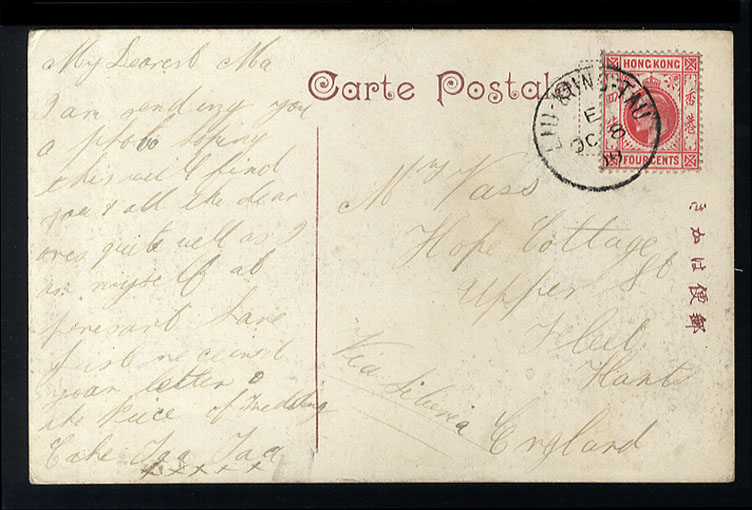 My Dearest Ma
I am sending you
a p/o hoping
this will find
you & all the dear
ones quite well as I
am myself at
presant I are
just received
your letter &
the Piece of Wedding
Cake Taa Taa
x x x x x
Carte Postal
HONG KONG
香港
FOUR CENTS
LIU-KUNG-TAU
E
OC 8
10
Mrs Vass
Hope Cottage
Upper St
Fleet
Hants
England
Via Siberia
郵便はかき